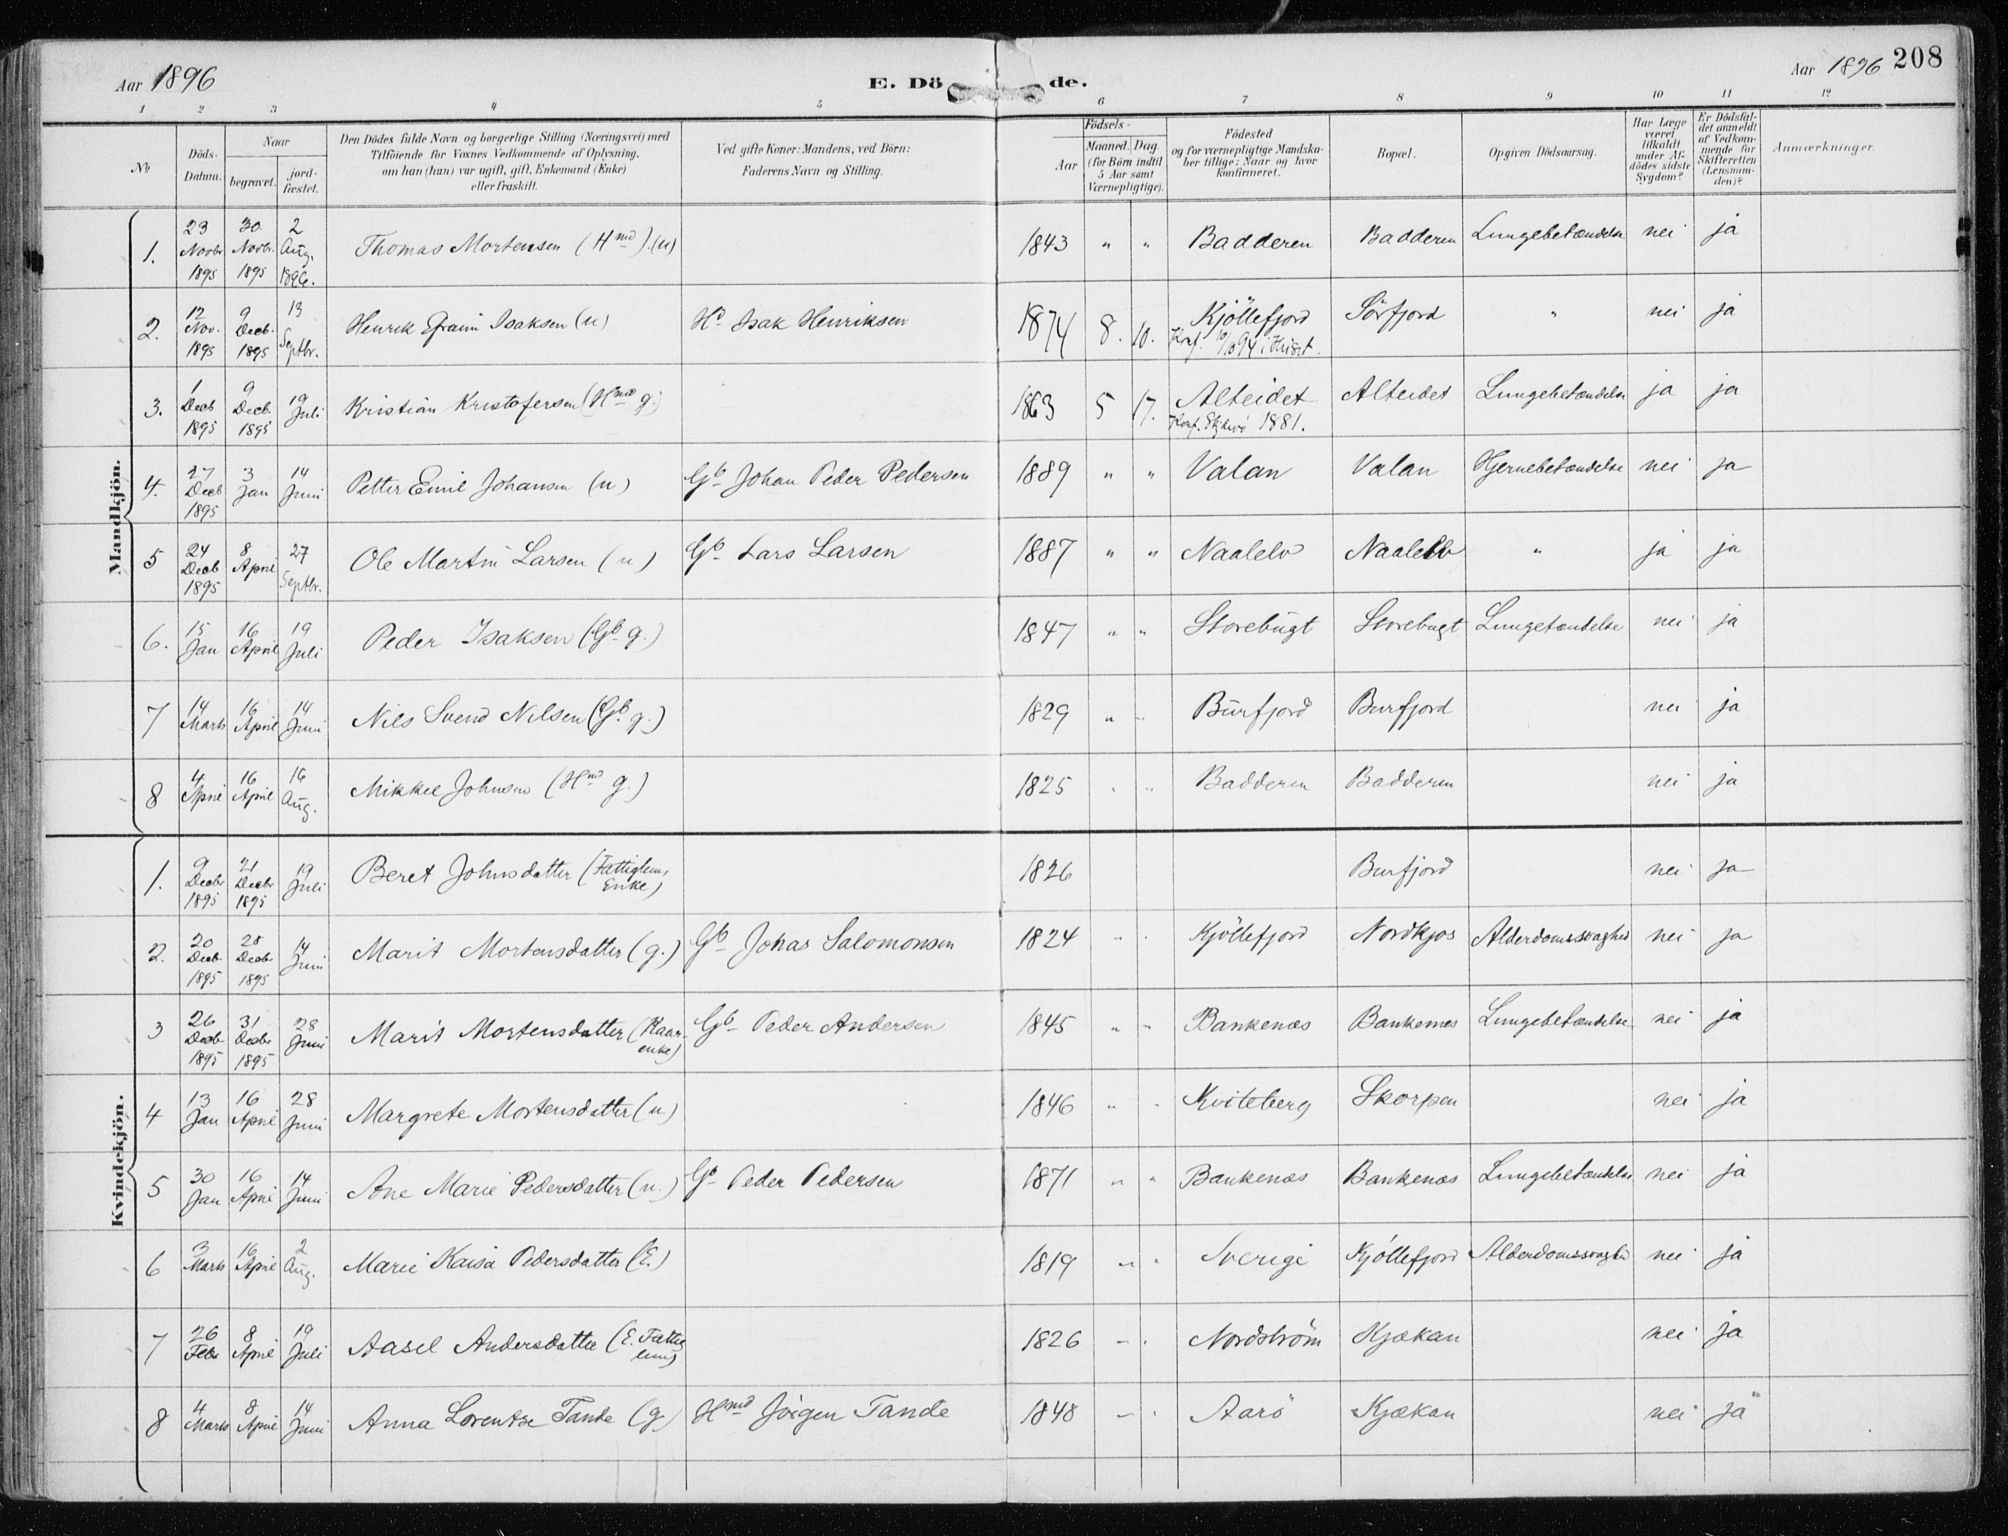 Aar 1896
E. Döde.
Aar 1896 208
1 2 3 4 5 6 7 8 9 10 11 12
No. Döds-Datum. Naar begravet. jordfæstet. Den Dödes fulde Navn og borgerlige Stilling (Næringsvei) med Tilföiende for Voxnes Vedkommende af Oplysning, om han (hun) var ugift, gift, Enkemand (Enke) eller fraskilt. Ved gifte Koner: Mandens, ved Börn: Faderens Navn og Stilling. Födsels- Aar Maaned. Dag. (for Börn indtil 5 Aar samt Værnepligtige). Födested og for værnepligtige Mandskaber tillige: Naar og hvor konfirmeret. Bopæl. Opgiven Dödsaarsag. Har Læge været tilkaldt under Afdödes sidste Sygdom? Er Dödsfaldet anmeldt af Vedkommende for Skifteretten (Lensmanden)? Anmærkninger.
Mandkjön.
1. 23 Novbr 1895 30 Novbr. 1895 2 Aug. 1896. Thomas Mortensen (Hmd) (u) 1843 " " Badderen Badderen Lungebetændelse nei ja
2. 12 Nov. 1895 9 Decb. 1895 13 Septbr. Henrik Efraim Isaksen (u) Hd Isak Henriksen 1874 8. 10. Kjöllefjord Konf. 10/ 94 i Huset. Sörfjord " nei ja
3. 1 Decb 1895 9 Decb. 1895 19 Juli Kristian Kristofersen (Hmd g.) 1863 5 17. Alteidet Konf. Skjærvö 1881. Alteidet Lungebetændelse ja ja
4. 27 Decb 1895 3 Jan 14 Juni Petter Emil Johansen (u) Gb Johan Peder Pedersen 1889 " " Valan Valan Hjernebetændelse nei ja
5 24 Decb 1895 8 April 27 Septbr. Ole Martin Larsen (u) Gb Lars Larsen 1887 " " Naalelv Naalelv " ja ja
6. 15 Jan 16 April 19 Juli Peder Isaksen (Gb g.) 1847 " " Storebugt Storebugt Lungetændelse nei ja
7 14 Marts 16 April 14 Juni Nils Svend Nilsen (Gb. g.) 1829 " " Burfjord Burfjord nei ja
8 4 April 16 April 16 Aug. Mikkel Johnsen (Hmd g.) 1825 " " Badderen Badderen nei ja
Kvindekjön.
1. 9 Decbr 1895 21 Decbr 1895 19 Juli Beret Johnsdatter (Fattiglem, Enke) 1826 Burfjord nei ja
2. 20 Decb 1895 28 Decb 1895 14 Juni Marit Mortensdatter (g.) Gb Johas Salomonsen 1824 " " Kjöllefjord Nordkjos Alderdomssvaghed nei ja
3 26 Decb 1895 31 Decbr 1895 28 Juni Marit Mortensdatter (Kaarenke) Gb Peder Andersen 1845 " " Bankenæs Bankenæs Lungebetændelse nei ja
4 13 Jan 16 April 28 Juni Margrete Mortensdatter (u) 1846 " " Kviteberg Skorpen nei ja
5 30 Jan 16 April 14 Juni Ane Marie Pedersdatter (u.) Gb Peder Pedersen 1871 " " Bankenæs Bankenæs Lungebetændelse nei ja
6 3 Marts 16 April 2 Aug. Marie Kaisa Pedersdatter (E.) 1819 " " Sverige Kjöllefjord Alderdomssvaghed nei ja
7 26 Febr 8 April 19 Juli Aasel Andersdatter (E. Fattiglem) 1826 " " Nordström Kjækan nei ja
8 4 Marts 8 April 14 Juni Anna Lorentse Tande (g) Hmd Jörgen Tande 1848 " " Aarö Kjækan nei ja